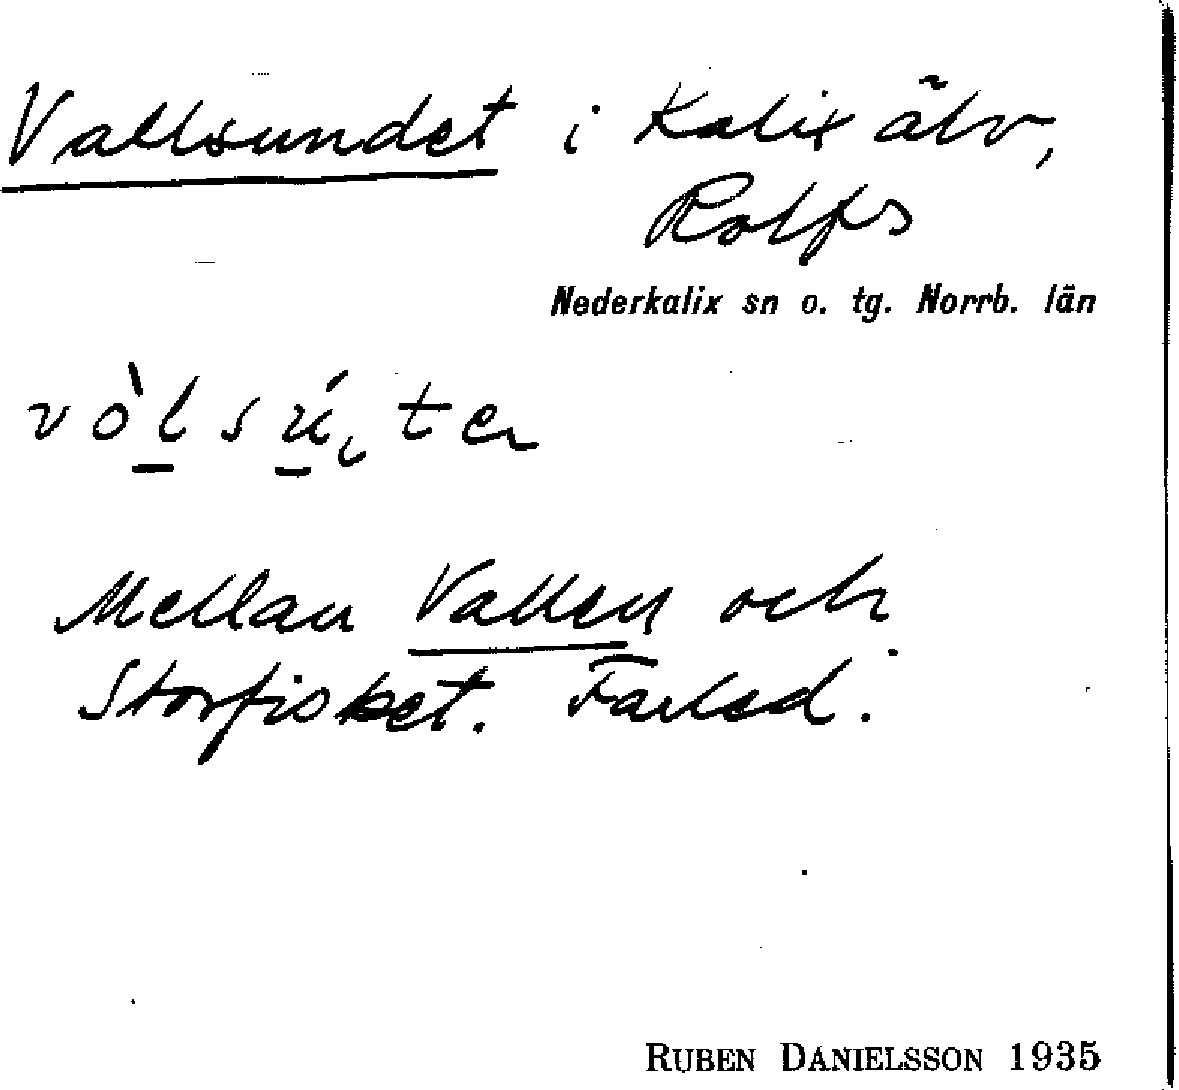 Vallsundet i Kalix älv,
Rolfs
Nederkalix sn o. tg. Norrb. län
Mellan Vallen och
Storfisket. Farled.
RUBEN DANIELSSON 1935